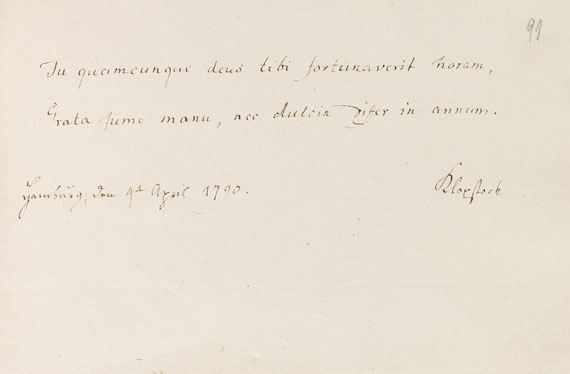 91
Tu quamcunque deus tibi fortunaverit horam,
Grata sume manu, nec dulcia differ in annum.
Hamburg, den 4ten April 1790.
Klopstock